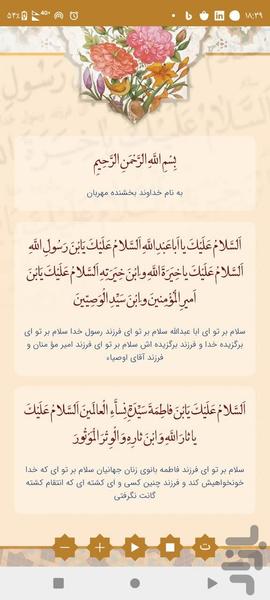 ۱۸:۳۹
۵۳٪
4G+
بِسْمِ اللَّهِ الرَّحْمَنِ الرَّحِيمِ
به نام خداوند بخشنده مهربان
اَلسَّلامُ عَلَيْكَ يا اَباعَبْدِاللَّهِ اَلسَّلامُ عَلَيْكَ يَابْنَ رَسُولِ اللَّهِ
اَلسَّلامُ عَلَيْكَ يا خِيَرَةَ اللَّهِ وابْنَ خِيَرَتِهِ اَلسَّلامُ عَلَيْكَ يَابْنَ
اَميرِ الْمُؤْمِنينَ وابْنَ سَيِّدِ الْوَصِيّينَ
سلام بر تو ای ابا عبدالله سلام بر تو ای فرزند رسول خدا سلام بر تو ای
برگزیده خدا و فرزند برگزیده اش سلام بر تو ای فرزند امیر مؤ منان و
فرزند آقای اوصیاء
اَلسَّلامُ عَلَيْكَ يَابْنَ فاطِمَةَ سَيِّدَةِ نِساَّءِ الْعالَمينَ اَلسَّلامُ عَلَيْكَ
يا ثارَ اللَّهِ وَابْنَ ثارِهِ وَالْوِتْرَ الْمَوْتُورَ
سلام بر تو ای فرزند فاطمه بانوی زنان جهانیان سلام بر تو ای که خدا
خونخواهیش کند و فرزند چنین کسی و ای کشته ای که انتقام کشته
گانت نگرفتی
بازار